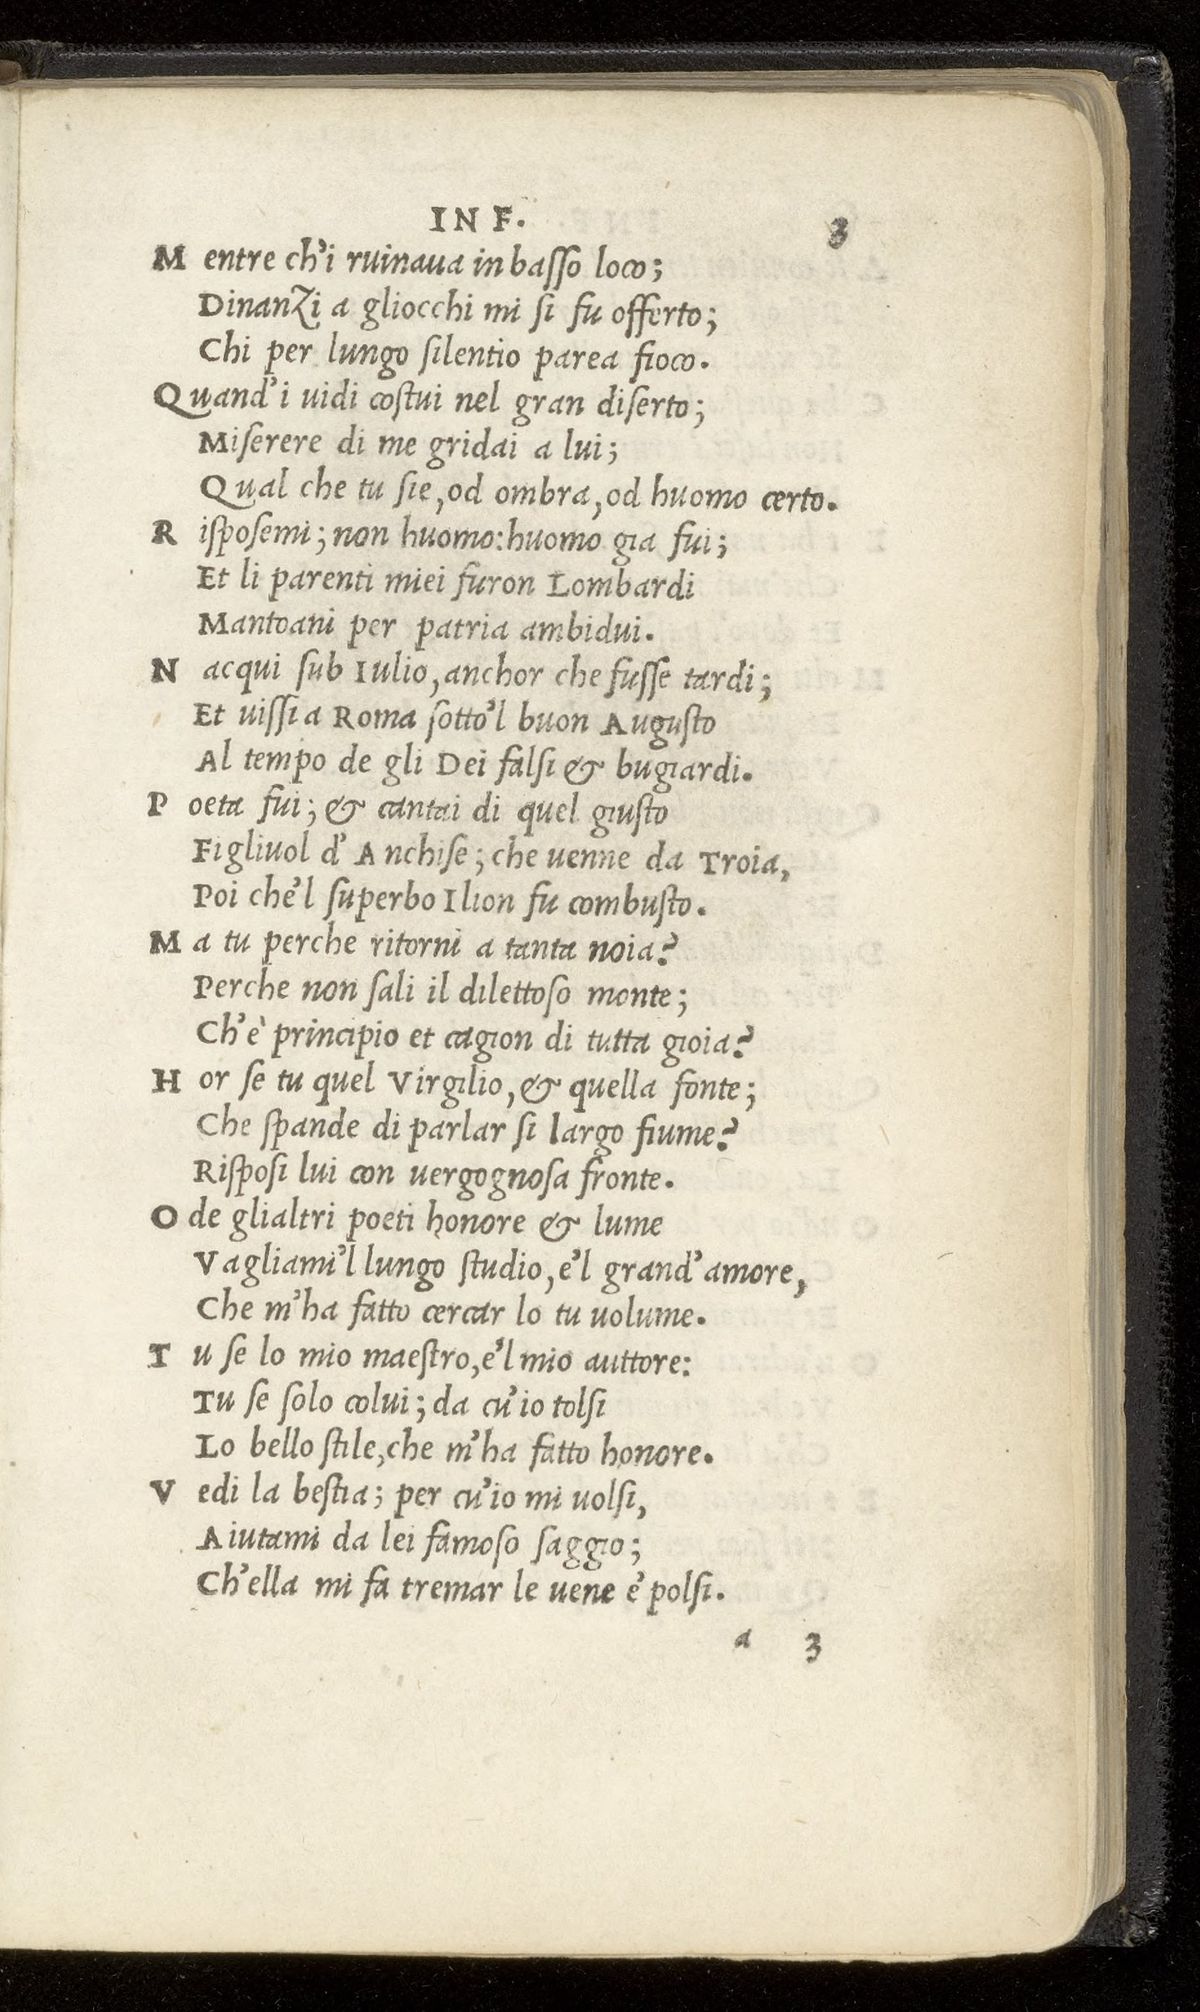 INF. 3
M entre ch'i ruinaua in basso loco;
Dinanzi a gliocchi mi si fu offerto;
Chi per lungo silentio parea fioco.
Quand'i uidi costui nel gran diserto;
Miserere di me gridai a lui;
Qual che tu sie, od ombra, od huomo certo.
R isposemi; non huomo: huomo gia fui;
Et li parenti miei furon Lombardi
Mantoani per patria ambidui.
N acqui sub Iulio, anchor che fusse tardi;
Et uissi a Roma sotto'l buon Augusto
Al tempo de gli Dei falsi & bugiardi.
P oeta fui; & cantai di quel giusto
Figliuol d'Anchise; che uenne da Troia,
Poi che'l superbo Ilion fu combusto.
M a tu perche ritorni a tanta noia?
Perche non sali il dilettoso monte;
Ch'è principio et cagion di tutta gioia?
H or se tu quel Virgilio, & quella fonte;
Che spande di parlar si largo fiume?
Risposi lui con uergognosa fronte.
O de glialtri poeti honore & lume
Vagliami'l lungo studio, e'l grand'amore,
Che m'ha fatto cercar lo tu uolume.
T u se lo mio maestro, e'l mio auttore:
Tu se solo colui; da cu'io tolsi
Lo bello stile, che m'ha fatto honore.
V edi la bestia; per cu'io mi uolsi,
Aiutami da lei famoso saggio;
Ch'ella mi fa tremar le uene e' polsi.
a 3